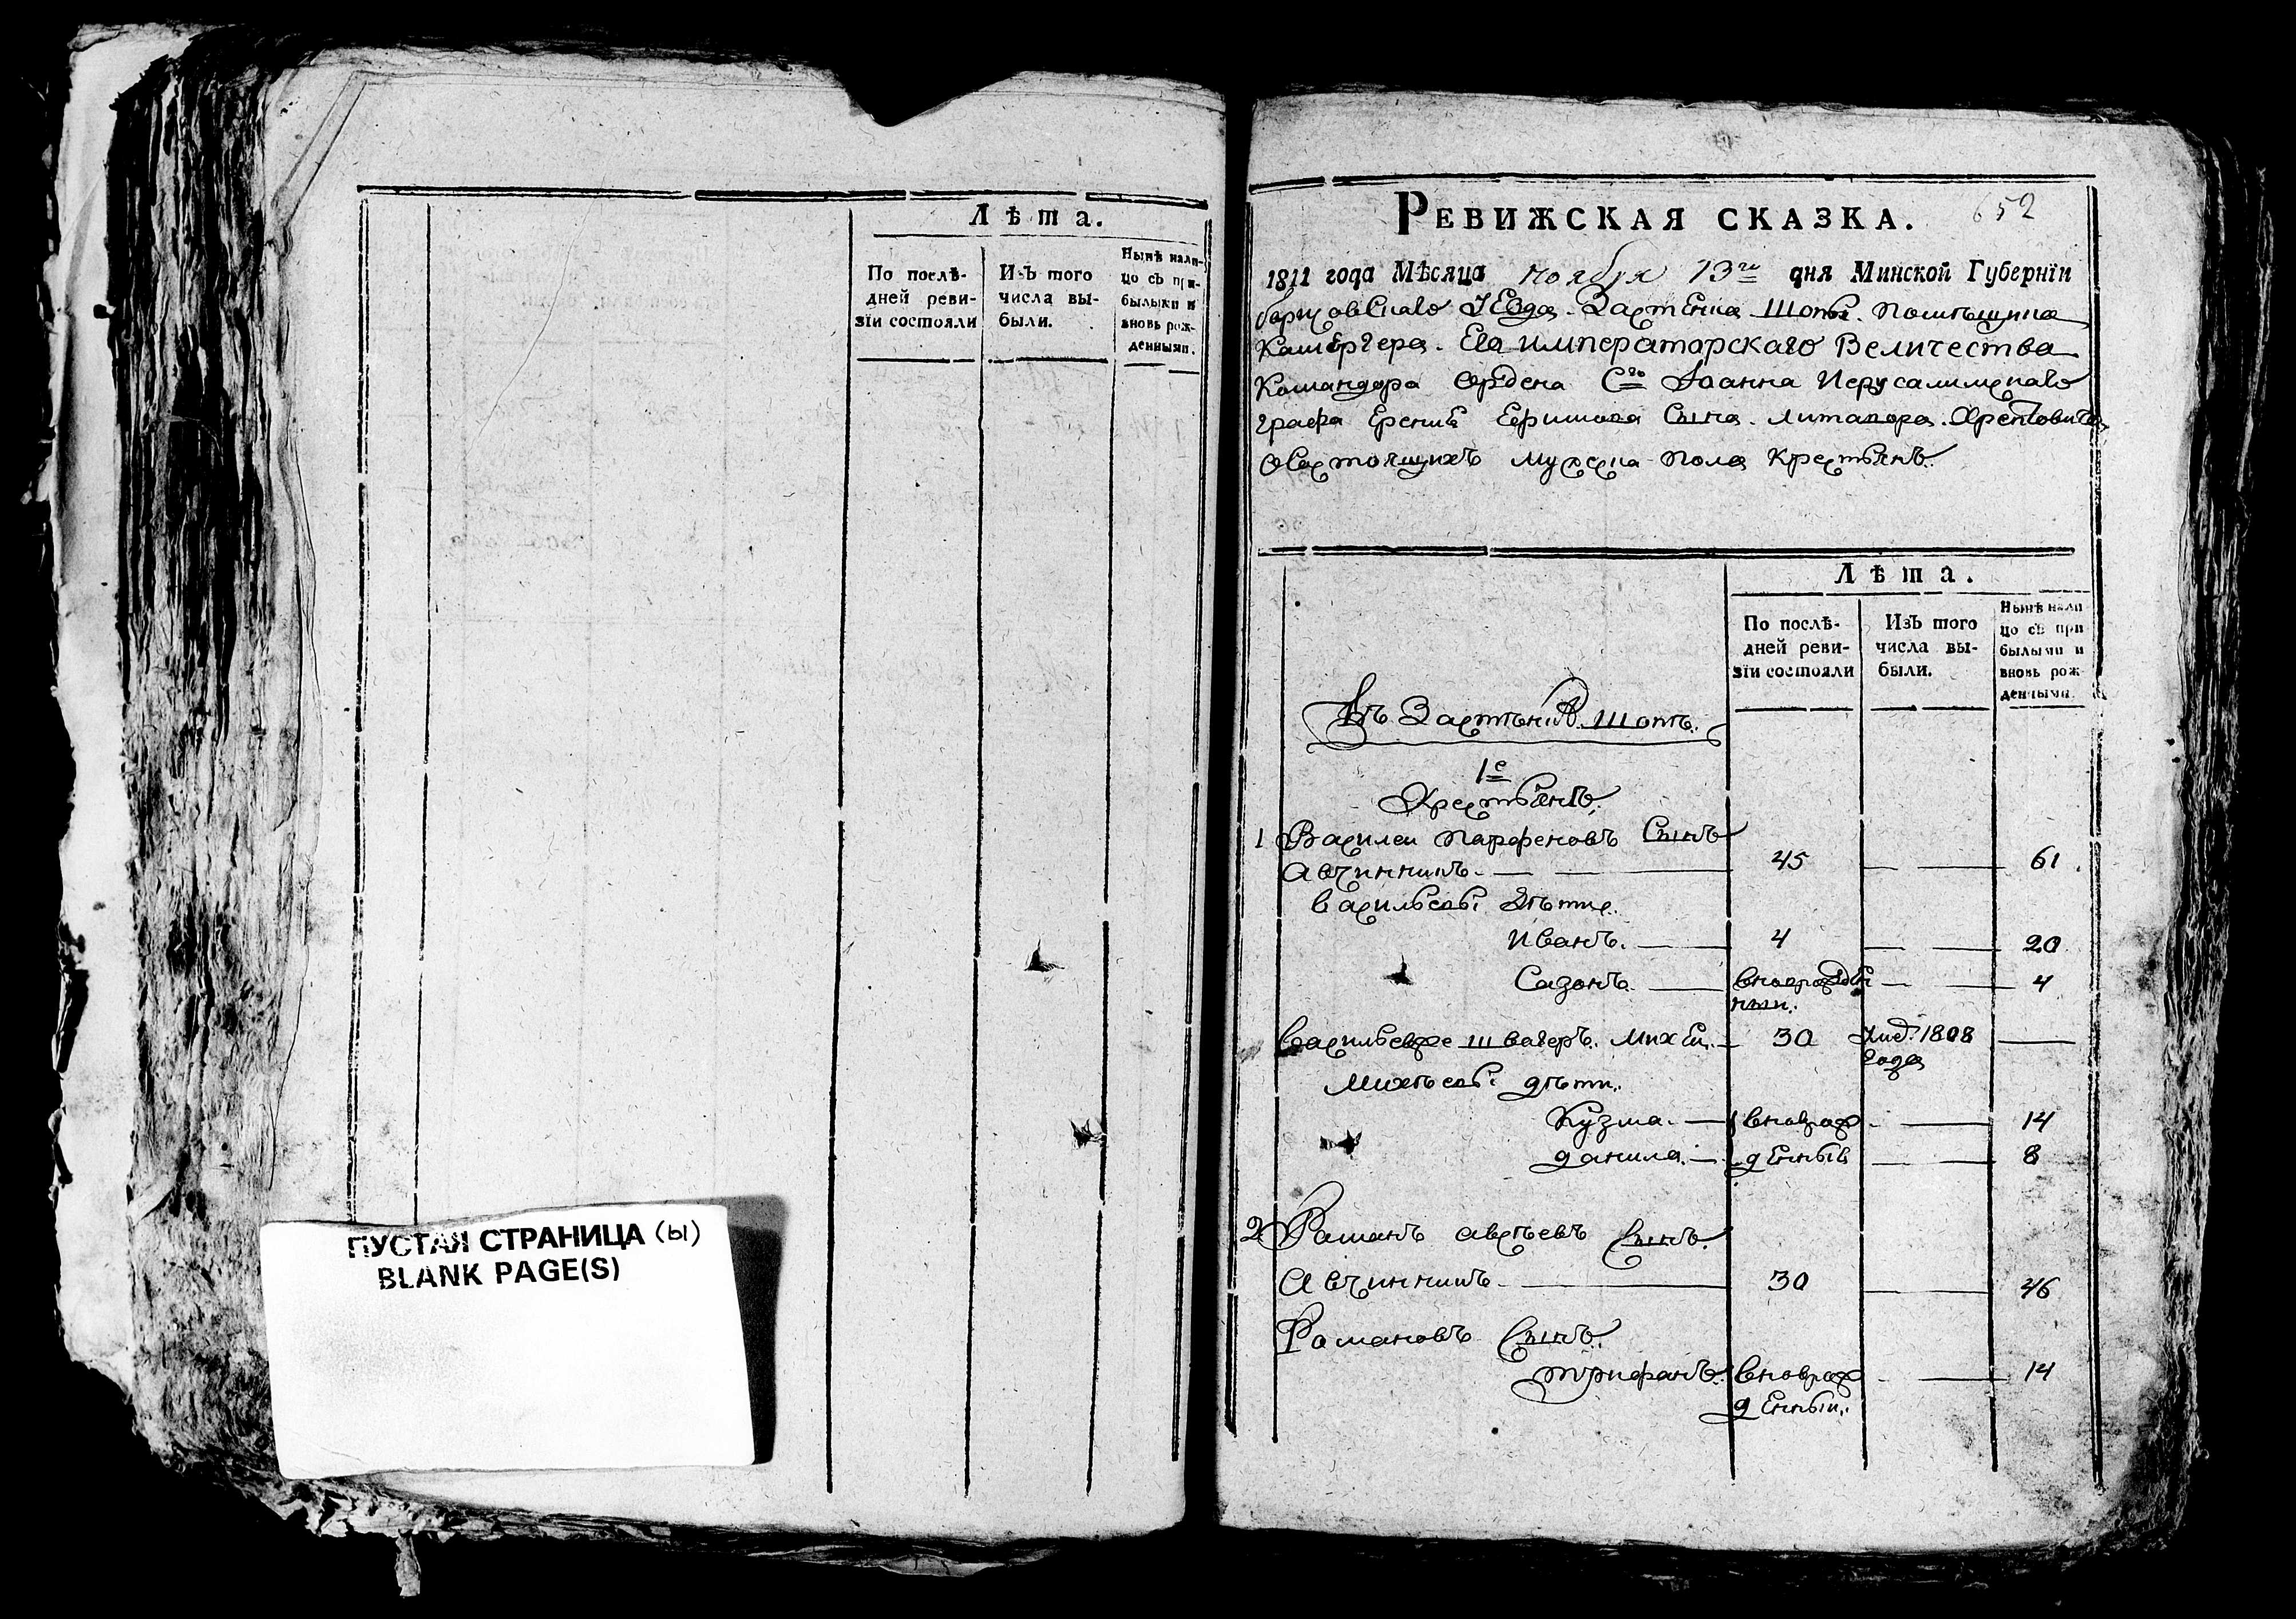 Лѣта.
По послѣ-
дней реви-
зїи состояли
Изъ того
числа вы-
были.
Нынѣ нали-
цо съ при-
былыми и
вновь рож-
денными.
ПУСТАЯ СТРАНИЦА (ы)
BLANK PAGE(S)
652
РЕВИЖСКАЯ СКАЗКА.
1811 года Мѣсяца ноября 13го дня Минской Губернїи
борисовскаго уезда Застенка Шоты помѣщика
Камергера Его императорскаго Величества
Командора ордена Сго Іоанна Иерусалимскаго
графа Сына Литавора Хрептовича
Состоящихъ мужска пола крестьянъ
Лѣта.
По послѣ-
дней реви-
зїи состояли
Изъ того
числа вы-
были.
Нынѣ нали
цо съ при
былыми и
вновь рож-
денными.
Въ Застѣнкѣ Шотѣ
1е
Крестьянъ
1 Василеи парфеновъ Сынъ
Авчинникъ 45 61
васильевы дѣти
Иванъ 4 20
Сазонъ вноврожден 4
ныи
Васильевъ швагеръ Михеи 30 1808
года
Михѣевы дѣти
Кузма вноврож 14
данила денныѣ 8
2 Раманъ авсѣевъ Сынъ
Авчинникъ 30 46
Романовъ Сынъ
трифанъ вноврож 14
денныи